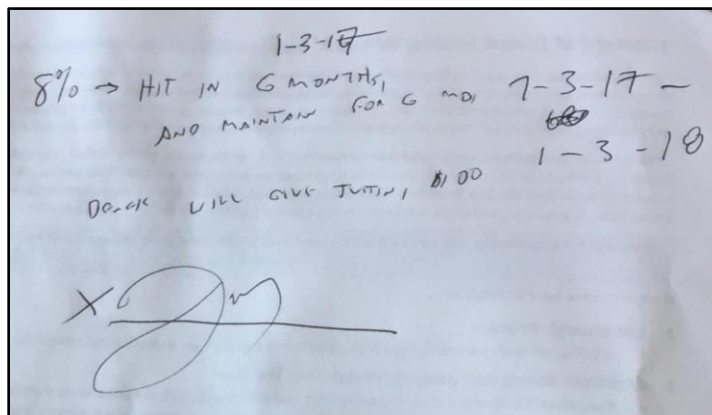 1-3-17
8% → HIT IN 6 MONTHS,
AND MAINTAIN FOR 6 MO, 7-3-17 –
1-3-18
WILL GIVE JUSTIN, $100
X